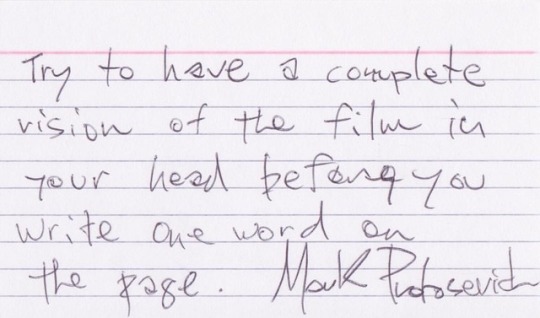 Try to have a complete
vision of the film in
your head before you
write one word on
the page. Mark Protosevich